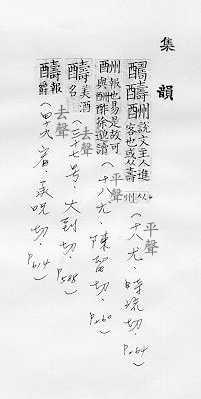 集韻
醻酬說文主人進客也或从壽从州
平聲
（十八尤．時流切．P.264）
酬報也易是故可與酬酢徐邈讀
平聲
（十八尤．陳留切．P.260）
醻美酒名
去聲
（三十七号．大到切．P.588）
醻報爵
去聲
（四十九宥．承呪切．P.614）